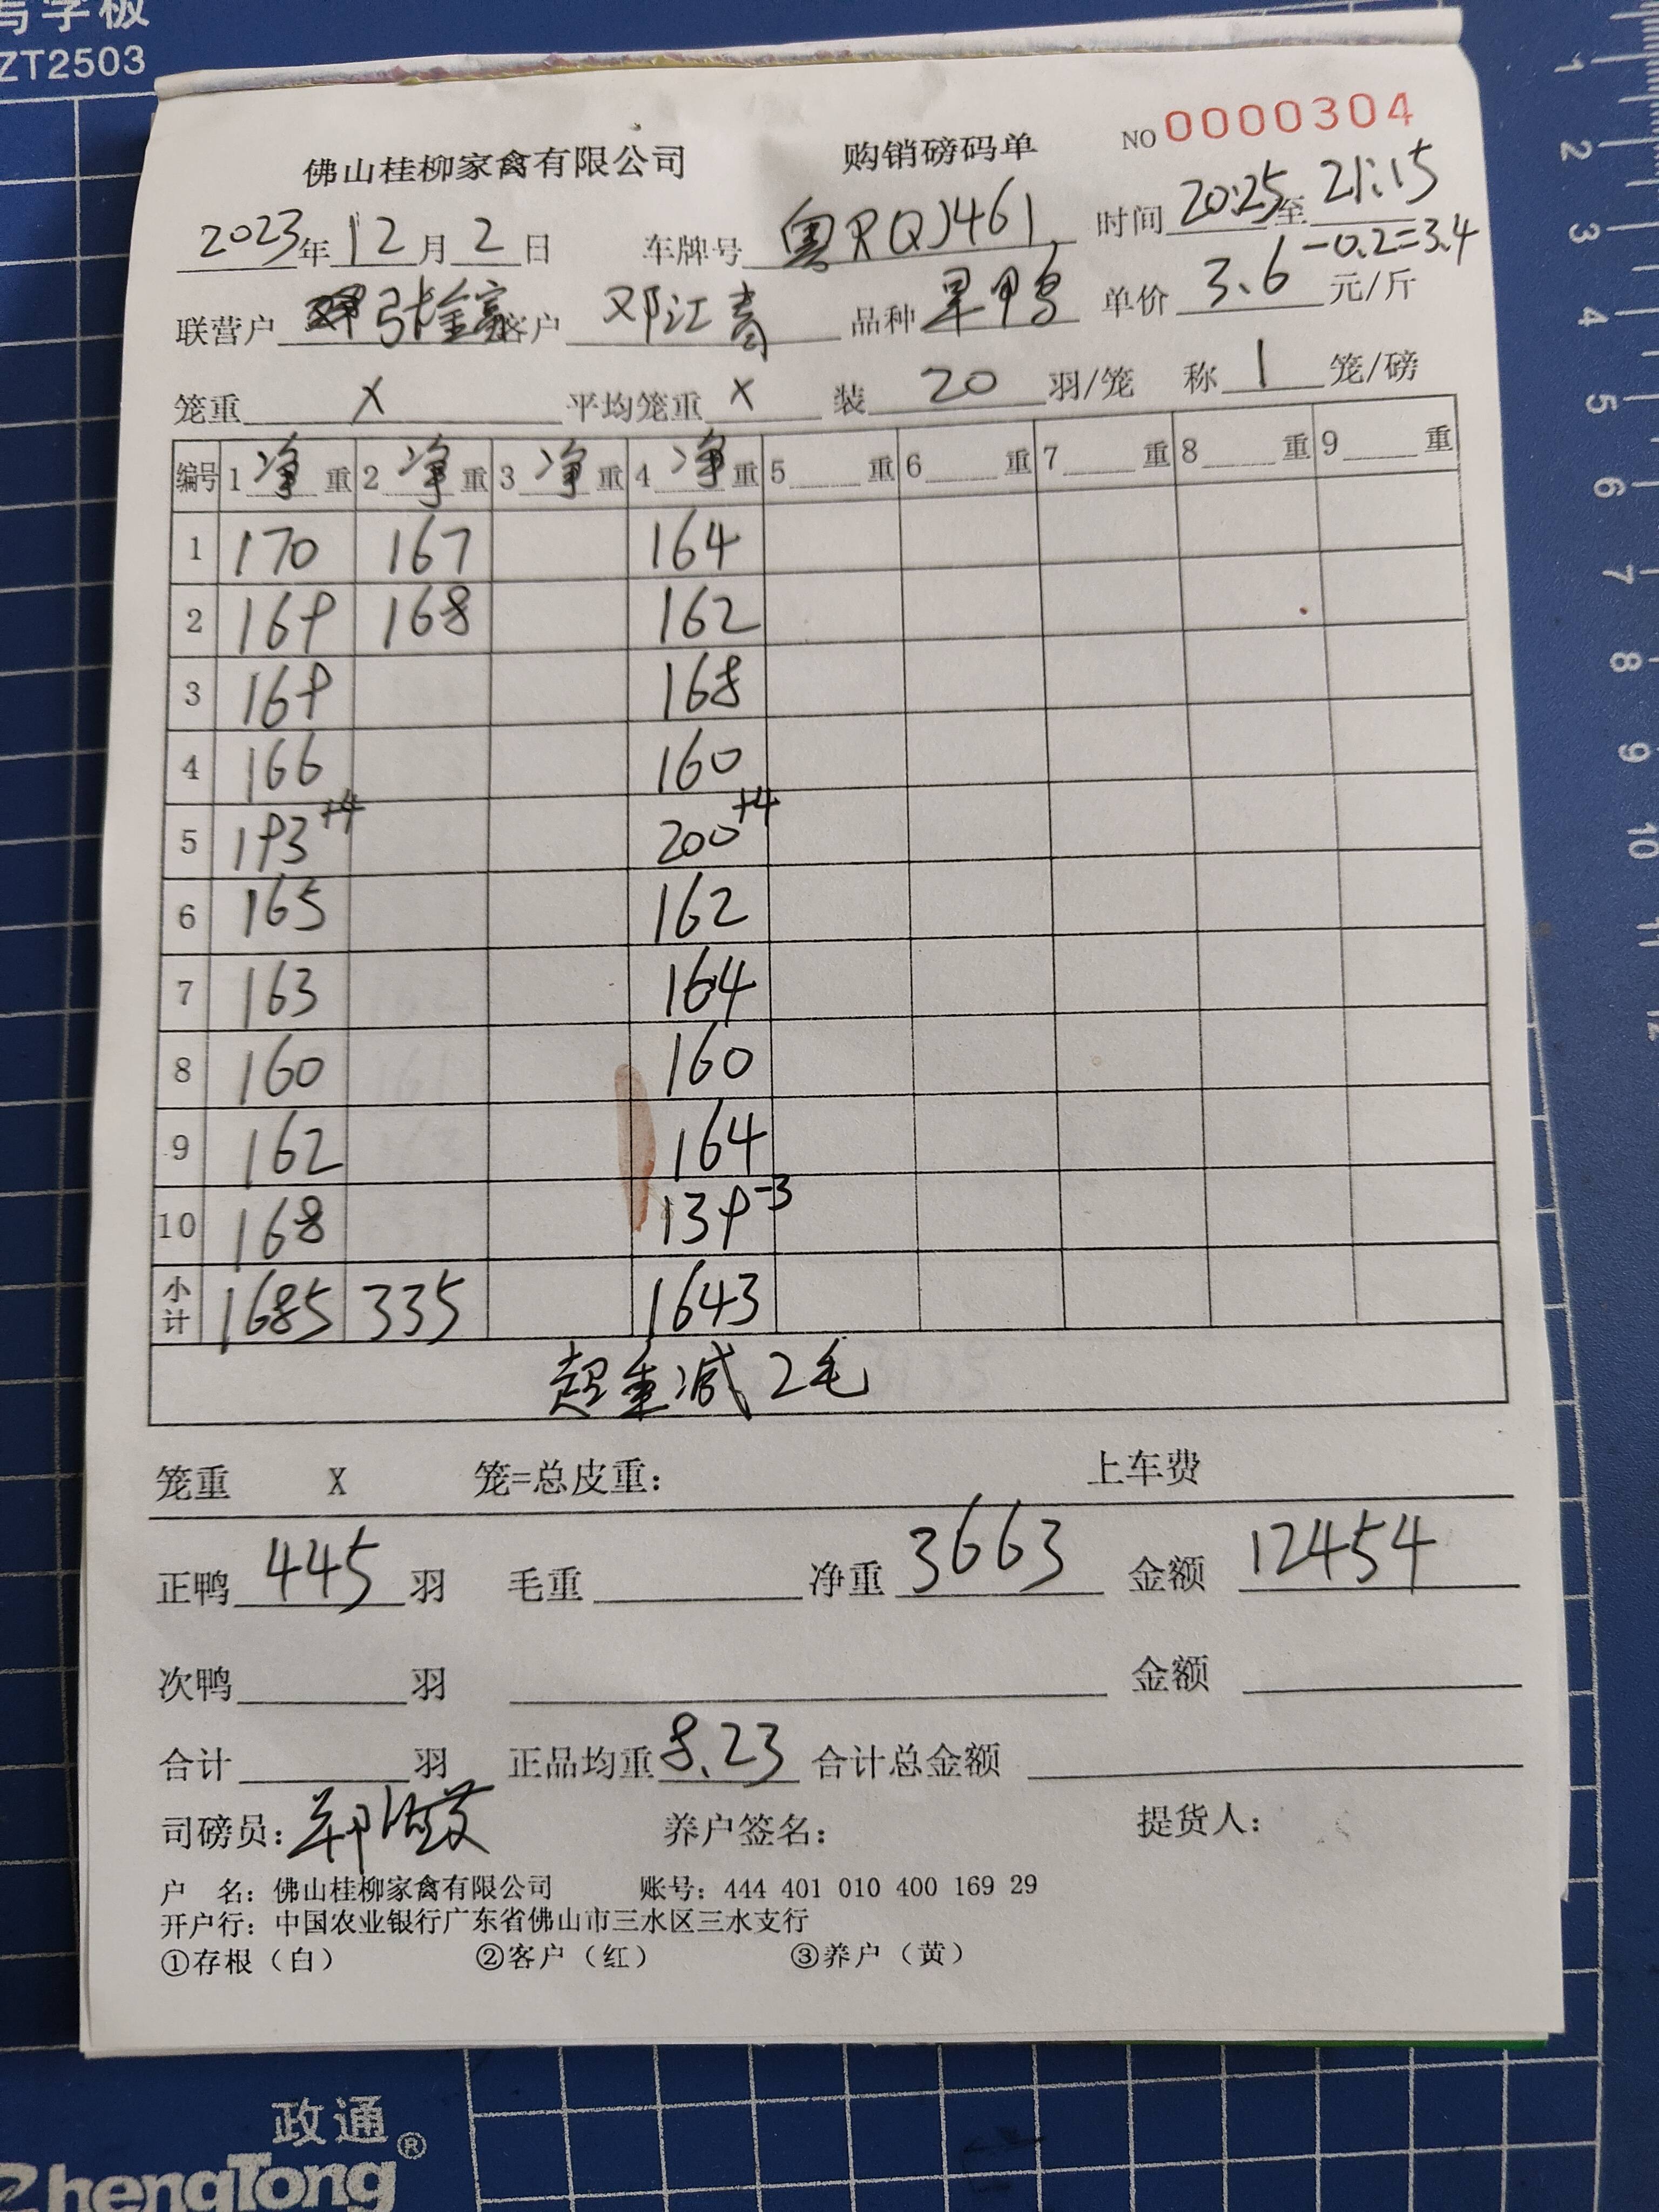 写字板
ZT2503
佛山桂柳家禽有限公司 购销磅码单 NO 0000304
2023年12月2日 车牌号 粤RQJ461 时间 20:25至 21:15
联营户 张金 客户 邓江青 品种 旱鸭 单价 3.6 -0.2=3.4 元/斤
笼重 X 平均笼重 X 装 20 羽/笼 称 1 笼/磅
编号 1 净 重 2 净 重 3 净 重 4 净 重 5 重 6 重 7 重 8 重 9 重
1 170 167 164
2 169 168 162
3 169 168
4 166 160
5 193+4 200+4
6 165 162
7 163 164
8 160 160
9 162 164
10 168 139-3
小计 1685 335 1643
超重减2毛
笼重 X 笼=总皮重: 上车费
正鸭 445 羽 毛重 净重 3663 金额 12454
次鸭 羽 金额
合计 羽 正品均重 8.23 合计总金额
司磅员: 养户签名: 提货人:
户 名: 佛山桂柳家禽有限公司 账号: 444 401 010 400 169 29
开户行: 中国农业银行广东省佛山市三水区三水支行
①存根（白） ②客户（红） ③养户（黄）
政通®
ZhengTong
1
2
3
4
5
6
7
8
9
10
11
12